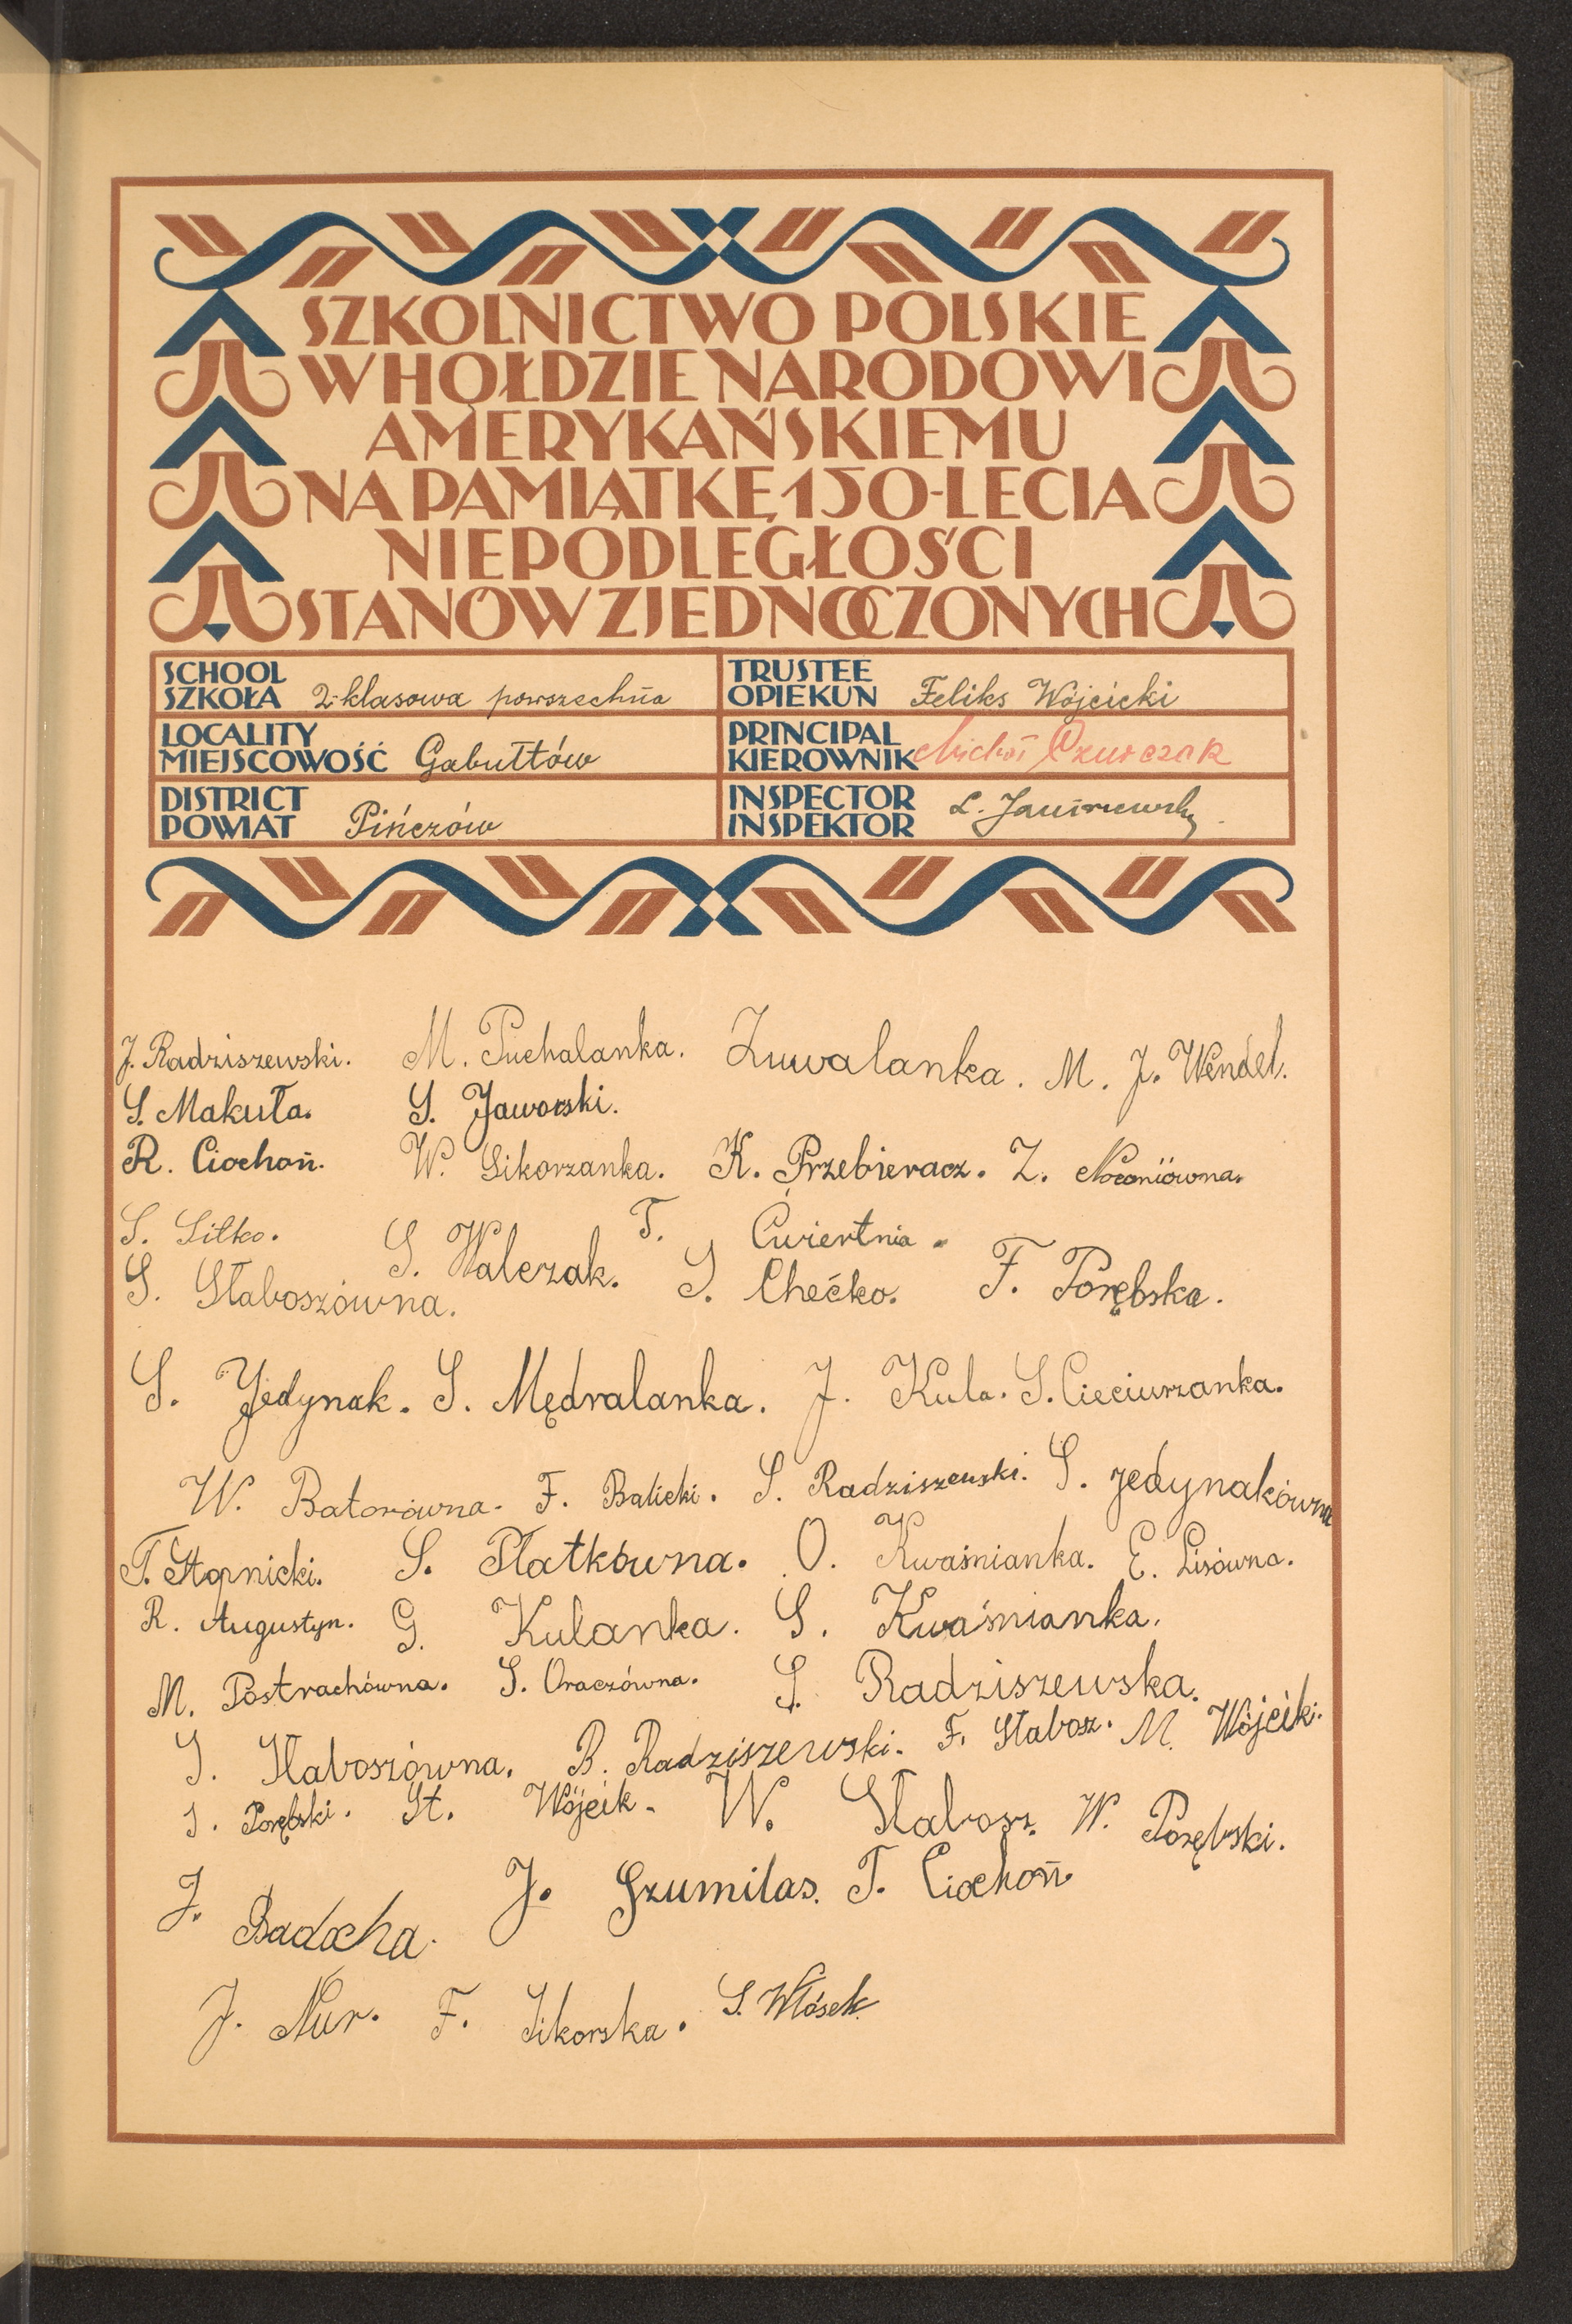 SZKOLNICTWO POLSKIE
W HOŁDZIE NARODOWI
AMERYKAŃSKIEMU
NA PAMIĄTKĘ 150-LECIA
NIEPODLEGŁOŚCI
STANÓW ZJEDNOCZONYCH
SCHOOL
SZKOŁA 2-klasowa powszechna
TRUSTEE
OPIEKUN Feliks Wójcicki
LOCALITY
MIEJSCOWOŚĆ Gabułtów
PRINCIPAL
KIEROWNIK Michał
DISTRICT
POWIAT Pińczów
INSPECTOR
INSPEKTOR L.
J. Radziszewski. M. Puchalanka. Zuwalanka. M. J. Wendel.
S. Makuła. S. Jaworski.
R. Ciochoń. W. Sikorzanka. K. Przebieracz. Z. Noconiówna.
S. Siłko. S. Walczak. T. Ćwiertnia.
S. Słaboszówna. S. Chećko. F. Porębska.
S. Jedynak. S. Mędralanka. J. Kula. S. Cieciurzanka.
W. Batorówna. F. Balicki. S. Radziszewski. S. Jedynakówna
T. Stopnicki. S. Płatkówna. O. Kwaśnianka. E. Lisówna.
R. Augustyn. G. Kulanka. S. Kwaśnianka.
M. Postrachówna. S. Oraczówna. S. Radziszewska.
S. Słaboszówna. B. Radziszewski. F. Słabosz. M. Wójcik.
S. Porębski. St. Wójcik. W. Słabosz. W. Porębski.
J. Badocha. J. Szumilas. T. Ciochoń
J. Nur. F. Sikorska. S. Włosek.